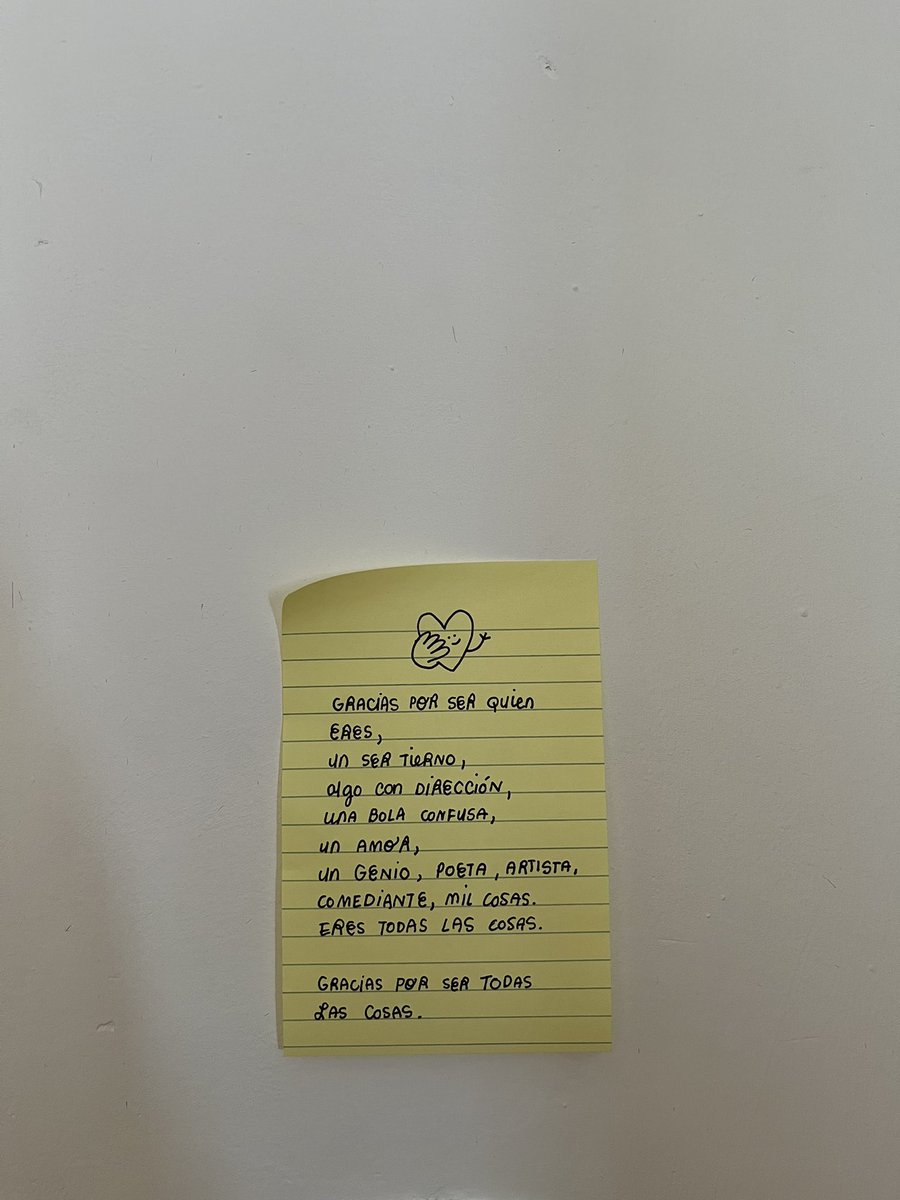 GRACIAS POR SER QUIEN
ERES,
UN SER TIERNO,
algo con DIRECCIÓN,
UNA BOLA CONFUSA,
UN AMOR,
UN GENIO, POETA, ARTISTA,
COMEDIANTE, MIL COSAS.
ERES TODAS LAS COSAS.
GRACIAS POR SER TODAS
LAS COSAS.